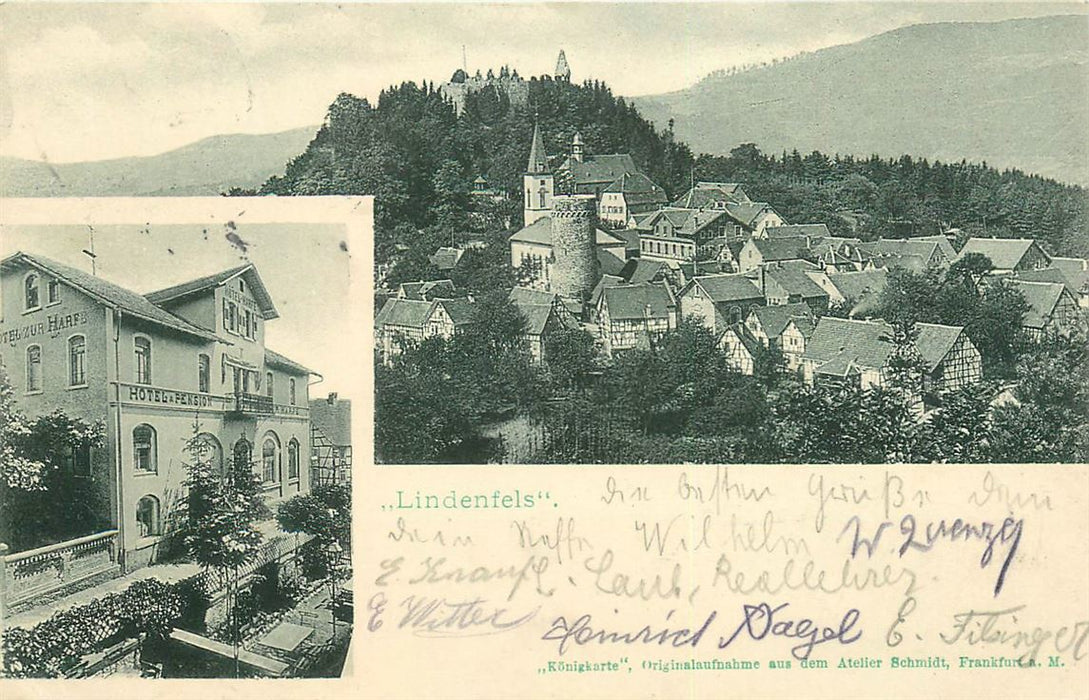 HOTEL ZUR HARFE
HOTEL & PENSION
„Lindenfels“. Die besten Grüße
dein Neffe Wilhelm W. Quenzg
E. Knauf. Laub, Reallehrer.
E Witter Heinrich Nagel E. Fitsinger
„Königkarte“, Originalaufnahme aus dem Atelier Schmidt, Frankfurt a. M.